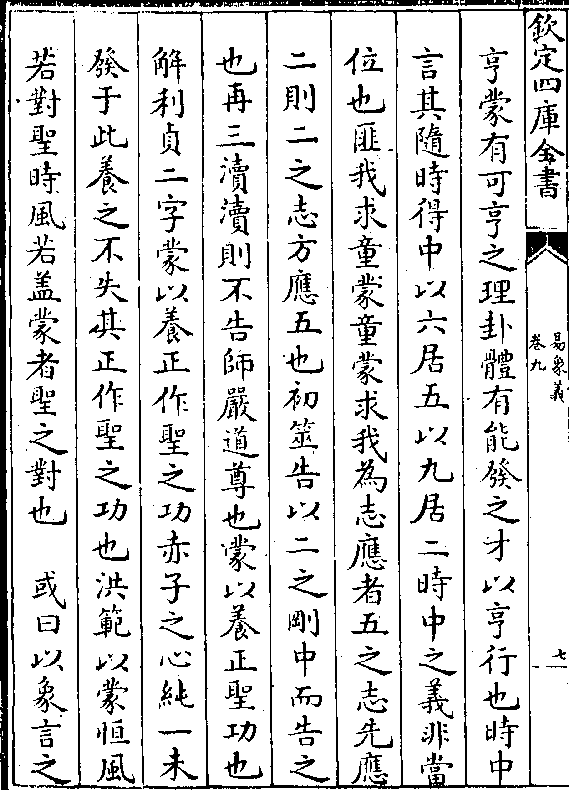 欽定四庫全書
易象義
卷九
七
亨蒙有可亨之理卦體有能發之才以亨行也時中
言其隨時得中以六居五以九居二時中之義非當
位也匪我求童蒙童蒙求我為志應者五之志先應
二則二之志方應五也初筮告以二之剛中而告之
也再三瀆瀆則不告師嚴道尊也蒙以養正聖功也
解利貞二字蒙以養正作聖之功赤子之心純一未
發于此養之不失其正作聖之功也洪範以蒙恒風
若對聖時風若盖蒙者聖之對也　或曰以象言之